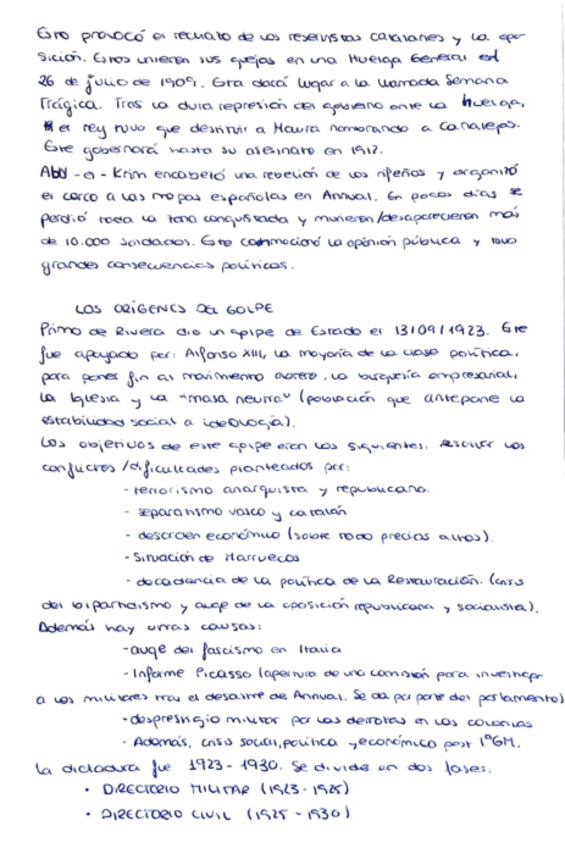 Esto provocó el rechazo de los reservistas catalanes y la opo-
sición. Estos unieron sus quejas en una Huelga General el
26 de julio de 1909. Esta dará lugar a la llamada Semana
Trágica. Tras la dura represión del gobierno ante la huelga,
el rey tuvo que destituir a Maura nombrando a Canalejas.
Este gobernará hasta su asesinato en 1912.
Abd-el-Krim encabezó una rebelión de los rifeños y organizó
el cerco a las tropas españolas en Annual. En pocos días se
perdió toda la zona conquistada y murieron/desaparecieron más
de 10.000 soldados. Esto conmocionó la opinión pública y tuvo
grandes consecuencias políticas.
LOS ORÍGENES DEL GOLPE
Primo de Rivera dio un golpe de Estado el 13/09/1923. Este
fue apoyado por: Alfonso XIII, la mayoría de la clase política,
para poner fin al movimiento obrero, la burguesía empresarial,
la Iglesia y la "masa neutra" (población que antepone la
estabilidad social a ideología).
Los objetivos de este golpe eran los siguientes, resolver los
conflictos/dificultades planteados por:
- terrorismo anarquista y republicano.
- separatismo vasco y catalán
- desorden económico (sobre todo precios altos).
- Situación de Marruecos
- decadencia de la política de la Restauración. (crisis
del bipartidismo y auge de la oposición republicana y socialista).
Además hay otras causas:
- auge del fascismo en Italia
- Informe Picasso (apertura de una comisión para investigar
a los militares tras el desastre de Annual. Se da por parte del parlamento)
- desprestigio militar por las derrotas en las colonias
- Además, crisis social, política y económico post 1ªGM.
La dictadura fue 1923-1930. Se divide en dos fases.
• DIRECTORIO MILITAR (1923-1925)
• DIRECTORIO CIVIL (1925-1930)